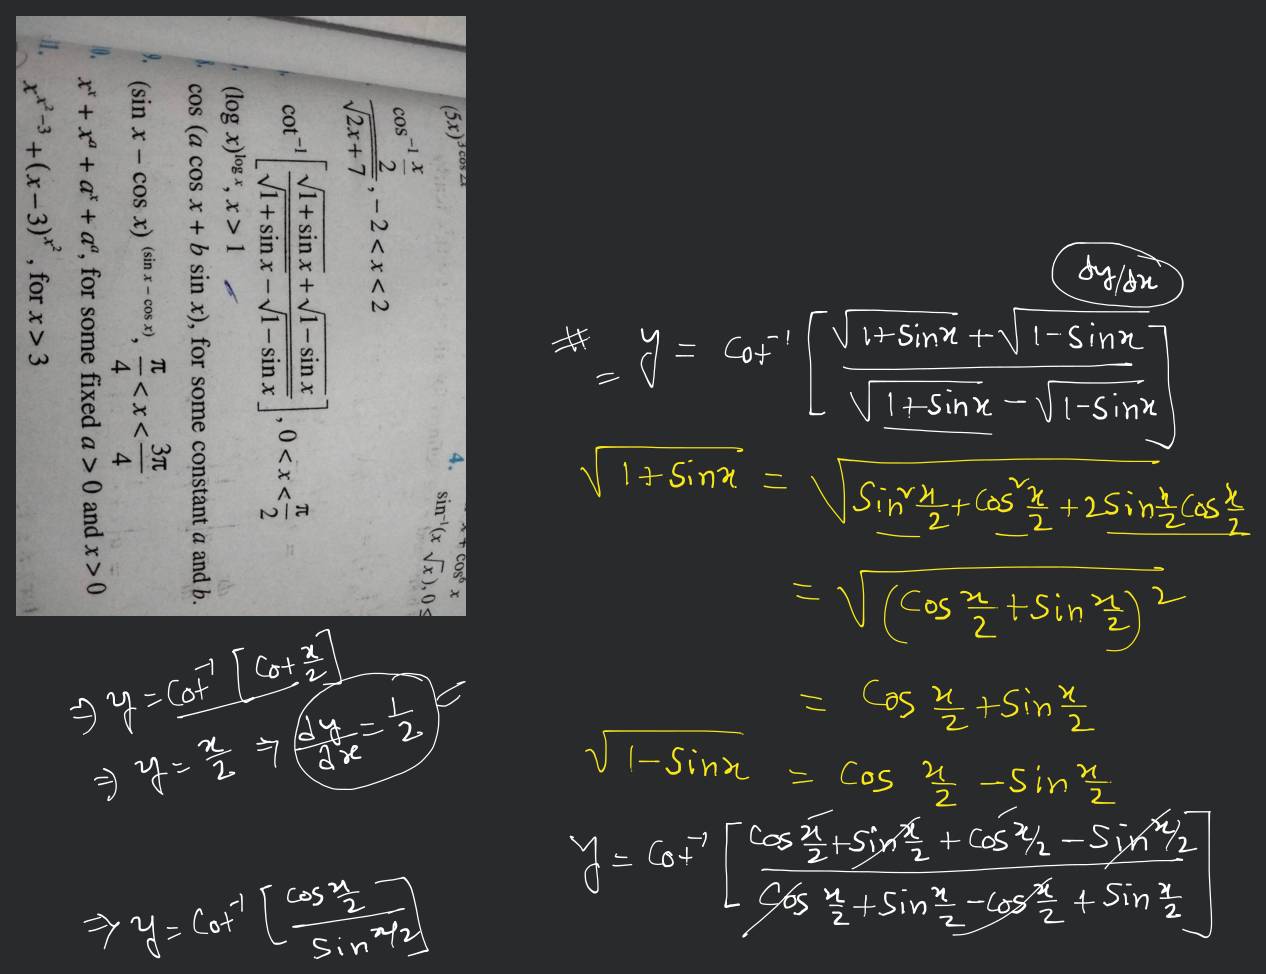 (5x)^{3 cos 2x}
cos⁻¹ x/2 / √(2x+7), −2 < x < 2
cot⁻¹ [(√(1+sin x) + √(1−sin x)) / (√(1+sin x) − √(1−sin x))], 0 < x < π/2
(log x)^{log x}, x > 1
cos (a cos x + b sin x), for some constant a and b.
9. (sin x − cos x)^{(sin x − cos x)}, π/4 < x < 3π/4
x^x + x^a + a^x + a^a, for some fixed a > 0 and x > 0
11. x^{x²−3} + (x−3)^{x²}, for x > 3
4. sin⁻¹(x √x), 0 ≤
dy/dx
# = y = Cot⁻¹ [(√(1+Sinx) + √(1−Sinx)) / (√(1+Sinx) − √(1−Sinx))]
√(1+Sinx) = √(Sin² x/2 + Cos² x/2 + 2Sin x/2 Cos x/2)
= √((Cos x/2 + Sin x/2)²)
= Cos x/2 + Sin x/2
√(1−Sinx) = Cos x/2 − Sin x/2
y = Cot⁻¹ [(Cos x/2 + Sin x/2 + Cos x/2 − Sin x/2) / (Cos x/2 + Sin x/2 − Cos x/2 + Sin x/2)]
⇒ y = Cot⁻¹ [Cos x/2 / Sin x/2]
⇒ y = Cot⁻¹ [Cot x/2]
⇒ y = x/2 ⇒ dy/dx = 1/2